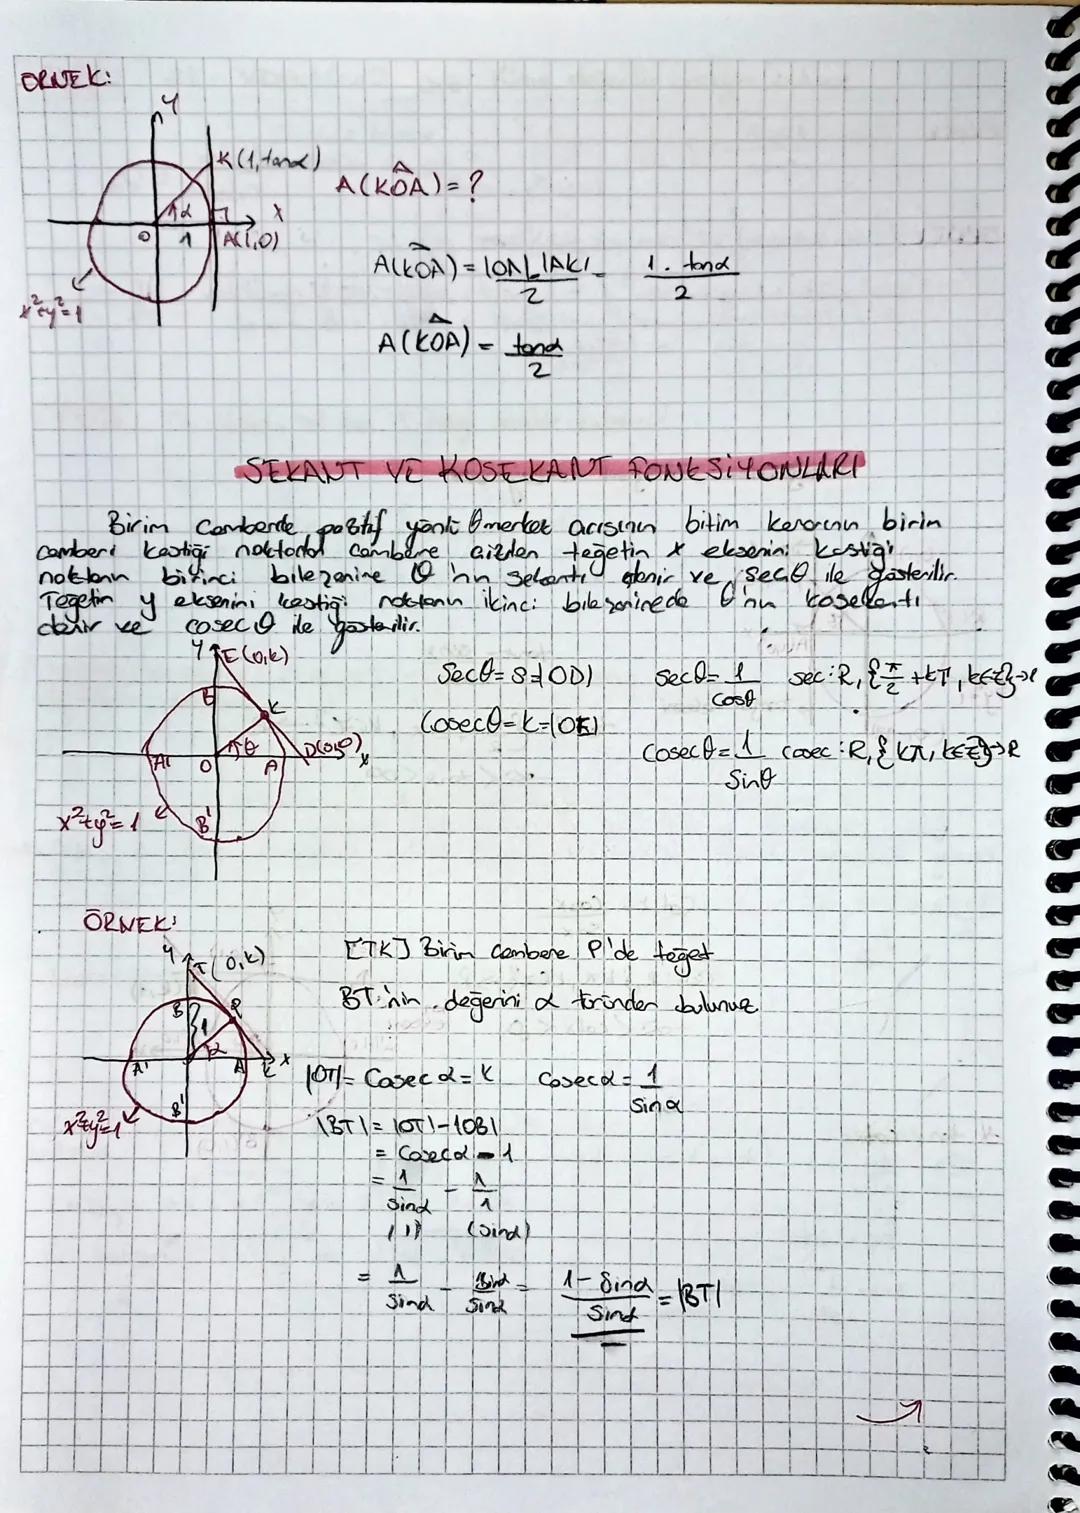 ÖRNEK:
y
K(1, tanα)
A(KOA) = ?
α
x
O
1
A(1,0)
A(KOA) = |OA|.|AK| / 2 = 1. tanα / 2
x²+y²=1
A(KOA) = tanα / 2
SEKANT VE KOSEKANT FONKSİYONLARI
Birim Çemberde pozitif yönlü θ merkez açısının bitim kenarının birim
çemberi kestiği noktadan çembere çizilen teğetin x eksenini kestiği
noktanın birinci bileşenine θ'nın sekantı denir ve secθ ile gösterilir.
Teğetin y eksenini kestiği noktanın ikinci bileşeninede θ'nın kosekantı
denir ve cosecθ ile gösterilir.
y
E(0,k)
Secθ = s = |OD|
secθ = 1 / cosθ
sec: R, {π/2 + kπ, k∈Z} → R
B
K
Cosecθ = k = |OE|
θ
A'
O
A
D(s,0)
x
Cosecθ = 1 / Sinθ
cosec: R, {kπ, k∈Z} → R
x²+y²=1
B'
ÖRNEK:
y
T(0,k)
[TK] Birim Çembere P'de teğet
B
P
1
BT'nin değerini α türünden bulunuz
α
A'
A
K
x
|OT| = Cosecα = k
Cosecα = 1 / Sinα
x²+y²=1
B'
|BT| = |OT| - |OB|
= Cosecα - 1
= 1 / Sinα - 1 / 1
(1) (Sinα)
= 1 / Sinα - Sinα / Sinα = 1 - Sinα / Sinα = |BT|